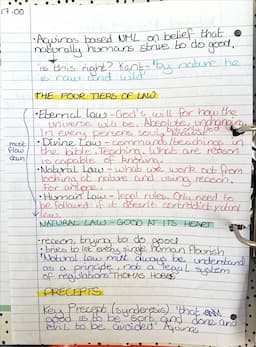 17.00
• Aquinas based NML on belief that
naturally humans strive to do good.
is this right? Kant- 'by nature he
is raw and wild'
THE FOUR TIERS OF LAW
• Eternal Law - God's will for how the
universe will be. Absolute, unchanging
In every persons soul,
• Divine Law - commands/teachings in
the bible. Teaching, what are reason
is capable of knowing.
• Natural Law - what we work out from
looking at nature and using reason.
For
• Human Law - legal rules. Only need to
be followed if it doesn't contradict natural
law.
must
flow
down
NATURAL LAW - GOOD AT ITS HEART
• reason trying to do good
• links to let every single human flourish
'Natural law must always be understand
as a principle, not a legal system
of regulations' THOMAS HOBBS
PRECEPTS
Key Precept (synderesis) 'that
good is to be sort and done and
evil to be avoided' Aquinas